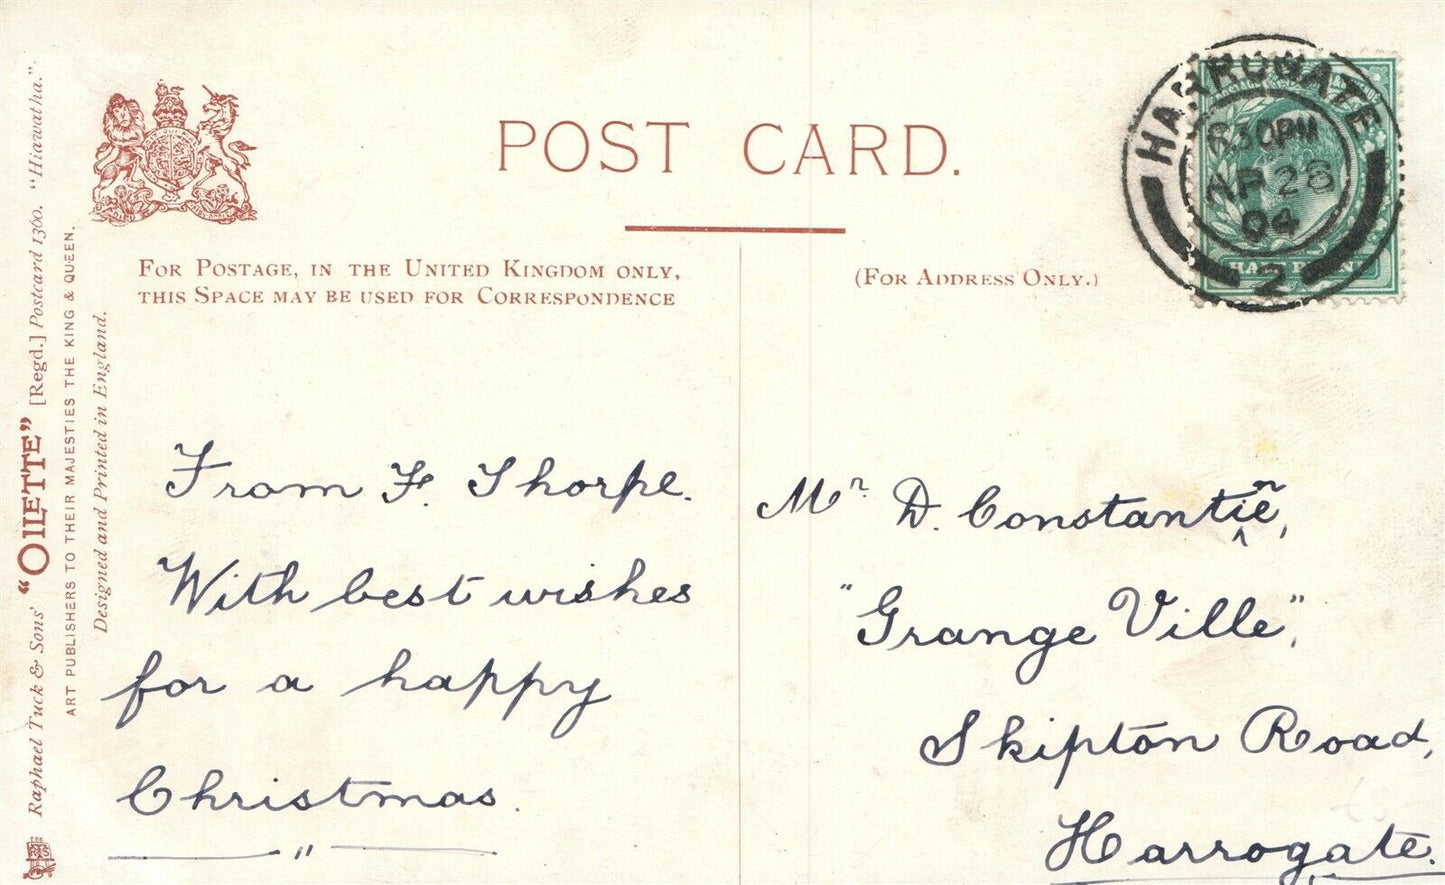 POST CARD.
FOR POSTAGE, IN THE UNITED KINGDOM ONLY,
THIS SPACE MAY BE USED FOR CORRESPONDENCE
(FOR ADDRESS ONLY.)
HARROGATE
6 30PM
AP 28
04
2
HALF PENNY
Raphael Tuck & Sons' "OILETTE" [Regd.] Postcard 1360. "Hiawatha."
ART PUBLISHERS TO THEIR MAJESTIES THE KING & QUEEN.
Designed and Printed in England.
From F. Thorpe.
With best wishes
for a happy
Christmas.
Mr. D. Constantine,
"Grange Ville",
Skipton Road,
Harrogate.